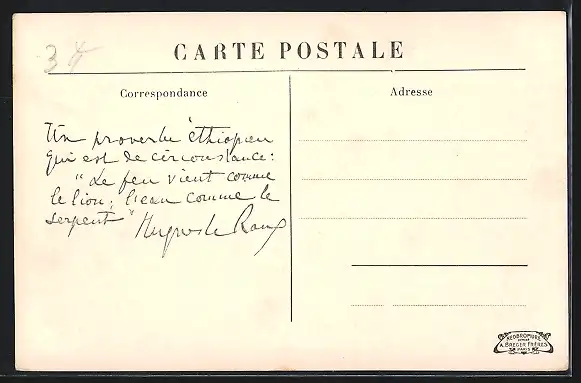 3
CARTE POSTALE
Correspondance
Adresse
Un proverbe éthiopien
qui est de circonstance:
"Le feu vient comme
le lion; l'eau comme le
serpent"
Hugues le Roux
NÉOBROMURE
A. BREGER FRÈRES
PARIS